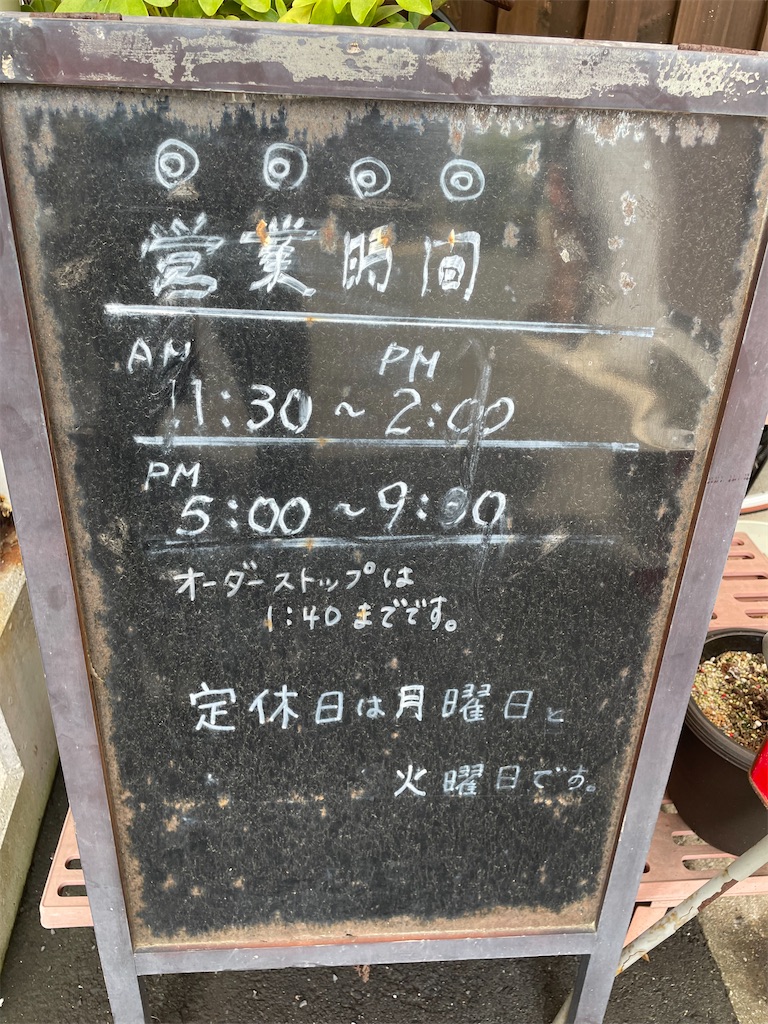 ◎ ◎ ◎ ◎
営業時間
AM PM
11:30 ~ 2:00
PM
5:00 ~ 9:00
オーダーストップは
1:40 までです。
定休日は月曜日と
火曜日です。